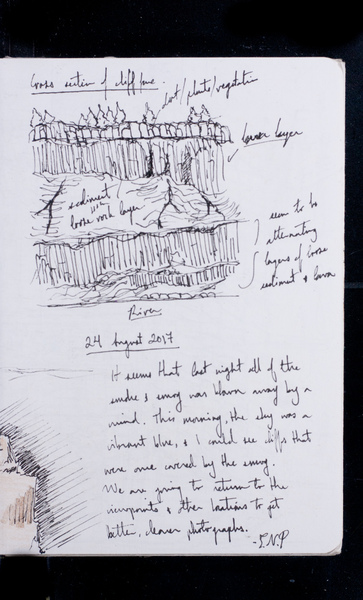 Cross section of cliff face
dirt/plants/vegetation
lower layer
sediment
loose rock layer
seem to be
alternating
layers of loose
sediment & lava
River
24 August 2017
It seems that last night all of the
smoke & smog was blown away by a
wind. This morning, the sky was a
vibrant blue, & I could see cliffs that
were once covered by the smog.
We are going to return to the
viewpoints & other locations to get
better, clearer photographs.